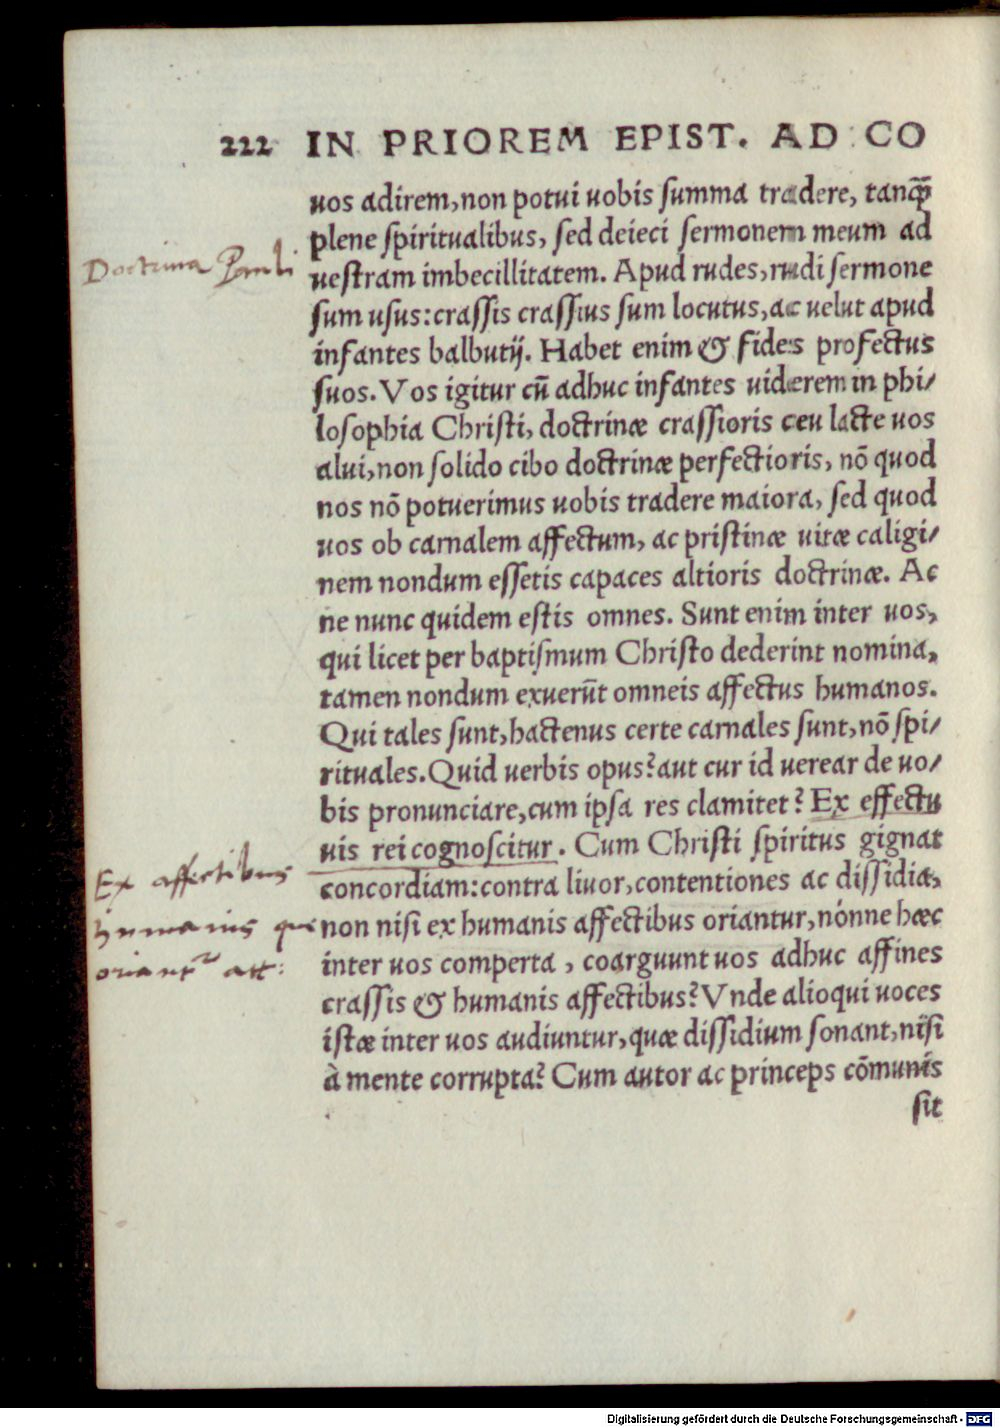 222 IN PRIOREM EPIST. AD CO
uos adirem, non potui uobis summa tradere, tanq̃
plene spiritualibus, sed deieci sermonem meum ad
Doctrina Pauli
uestram imbecillitatem. Apud rudes, rudi sermone
sum usus: crassis crassius sum locutus, ac uelut apud
infantes balbutij. Habet enim & fides profectus
suos. Vos igitur cũ adhuc infantes uiderem in phi/
losophia Christi, doctrinæ crassioris ceu lacte uos
alui, non solido cibo doctrinæ perfectioris, nõ quod
nos nõ potuerimus uobis tradere maiora, sed quod
uos ob carnalem affectum, ac pristinæ uitæ caligi/
nem nondum essetis capaces altioris doctrinæ. Ac
ne nunc quidem estis omnes. Sunt enim inter uos,
qui licet per baptismum Christo dederint nomina,
tamen nondum exuerũt omneis affectus humanos.
Qui tales sunt, hactenus certe carnales sunt, nõ spi/
rituales. Quid uerbis opus? aut cur id uerear de uo/
bis pronunciare, cum ipsa res clamitet? Ex effectu
uis rei cognoscitur. Cum Christi spiritus gignat
Ex affectibus
humanis que
oriantr
concordiam: contra liuor, contentiones ac dissidia,
non nisi ex humanis affectibus oriantur, nónne hæc
inter uos comperta, coarguunt uos adhuc affines
crassis & humanis affectibus? Vnde alioqui uoces
istæ inter uos audiuntur, quæ dissidium sonant, nisi
à mente corrupta? Cum autor ac princeps cõmunis
sit
Digitalisierung gefördert durch die Deutsche Forschungsgemeinschaft - DFG